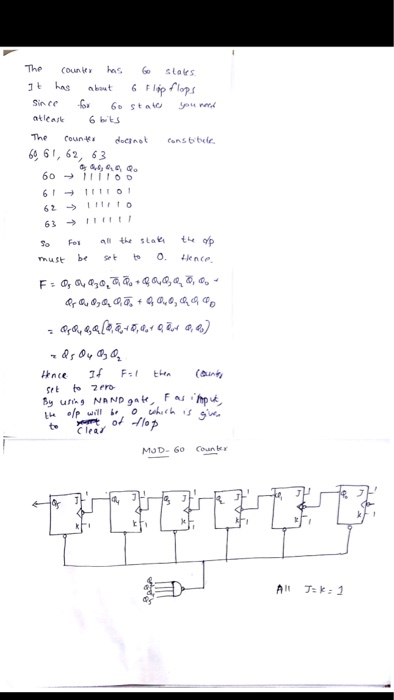 The counter has 60 states.
It has about 6 Flip flops
Since for 60 states you need
atleast 6 bits
The counter doesnot constitute
60, 61, 62, 63
Q5 Q4 Q3 Q2 Q1 Q0
60 → 111100
61 → 111101
62 → 111110
63 → 111111
So For all the states the o/p
must be set to 0. Hence.
F = Q5 Q4 Q3 Q2 Q̄1 Q̄0 + Q5 Q4 Q3 Q2 Q̄1 Q0 +
Q5 Q4 Q3 Q2 Q1 Q̄0 + Q5 Q4 Q3 Q2 Q1 Q0
= Q5 Q4 Q3 Q2 [Q̄1 Q̄0 + Q̄1 Q0 + Q1 Q̄0 + Q1 Q0)
= Q5 Q4 Q3 Q2
Hence If F=1 then
set to zero
By using NAND gate, F as input,
the o/p will be 0 which is given
to clear of flop
MOD-60 Counter
Q5 J 1 Q4 J 1 Q3 J 1 Q2 J 1 Q1 J 1 Q0 J 1
K 1 K 1 K 1 K 1 K 1 K 1
Q5
All J=K=1